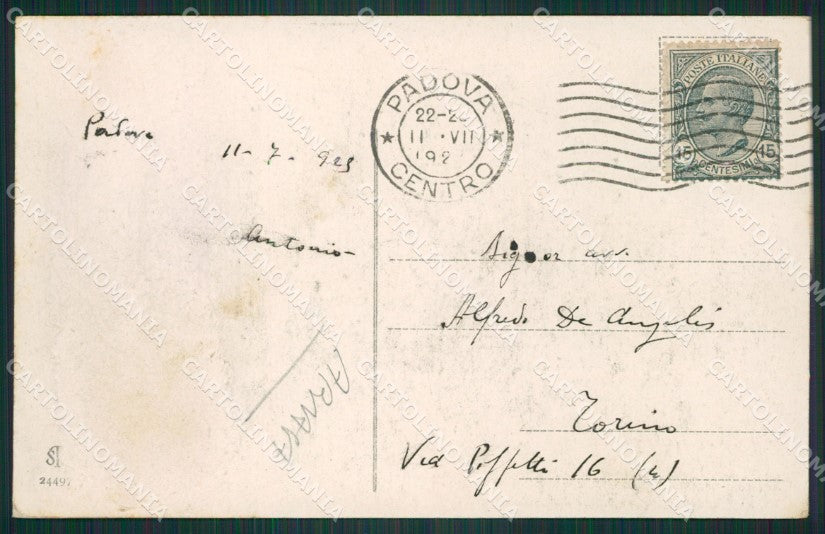 Padova
11-7-923
Antonio
PADOVA
22-2
11 · VII
192
CENTRO
POSTE ITALIANE
15 CENTESIMI 15
Signor avv.
Alfredo De Angelis
Torino
Via 16 (4)
24497
CARTOLINOMANIA